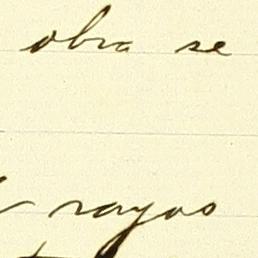 obra se
rayos